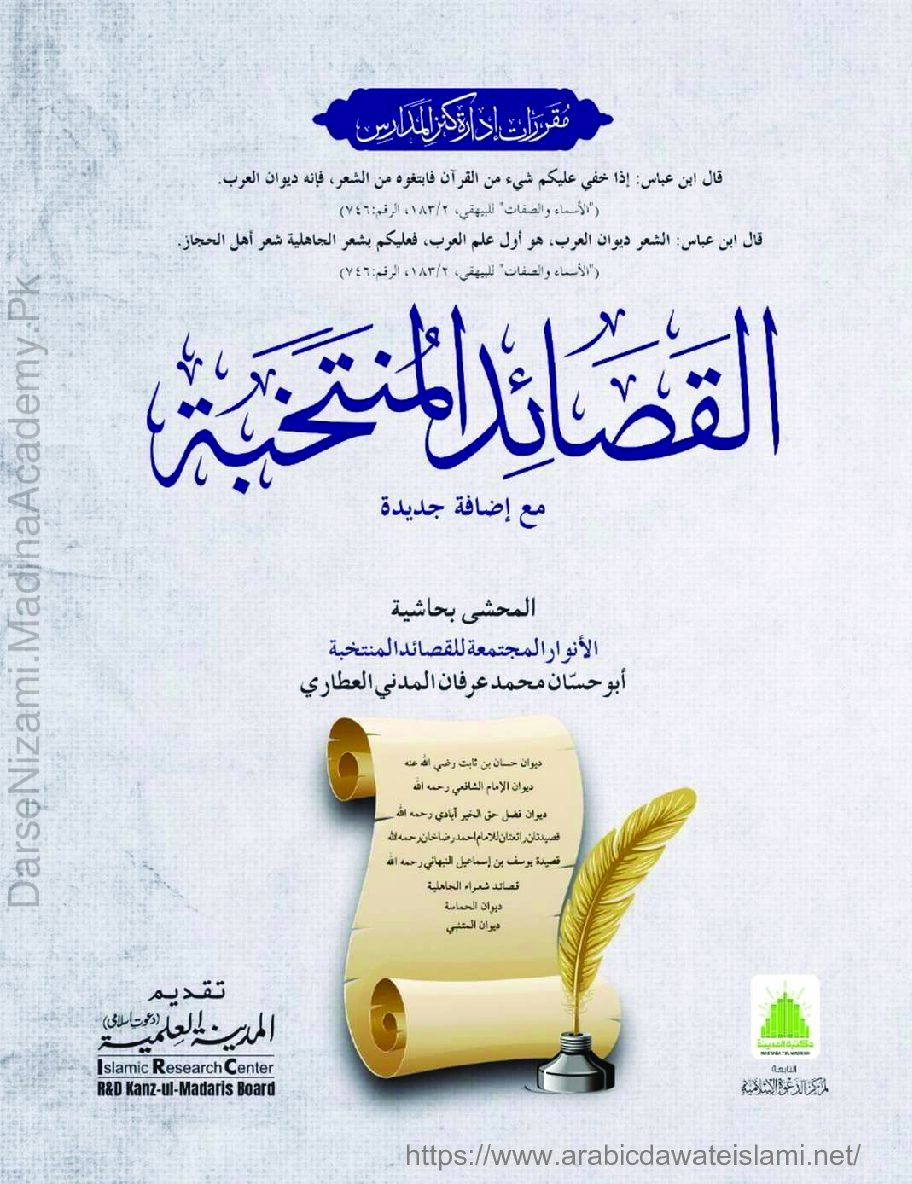 مُقرراتِ إدارة كنز المَدارس
قال ابن عباس: إذا خفي عليكم شيء من القرآن فابتغوه من الشعر، فإنه ديوان العرب.
("الأسماء والصفات" للبيهقي، ١٨٣/٢، الرقم:٧٤٦)
قال ابن عباس: الشعر ديوان العرب، هو أول علم العرب، فعليكم بشعر الجاهلية شعر أهل الحجاز.
("الأسماء والصفات" للبيهقي، ١٨٣/٢، الرقم:٧٤٦)
القَصَائِد المُنتَخَبَة
مع إضافة جديدة
المحشى بحاشية
الأنوار المجتمعة للقصائد المنتخبة
أبو حسّان محمد عرفان المدني العطاري
ديوان حسان بن ثابت رضي الله عنه
ديوان الإمام الشافعي رحمه الله
ديوان فضل حق الخير آبادي رحمه الله
قصيدتان رائعتان للامام احمد رضا خان رحمه الله
قصيدة يوسف بن إسماعيل النبهاني رحمه الله
قصائد شعراء الجاهلية
ديوان الحماسة
ديوان المتنبي
تقديم
المدينة العلمية (دعوتِ اسلامی)
Islamic Research Center
R&D Kanz-ul-Madaris Board
مكتبة المدينة
MAKTABA TUL MADINAH
التابعة
لمركز الدعوة الإسلامية
DarseNizami.MadinaAcademy.Pk
https://www.arabicdawateislami.net/